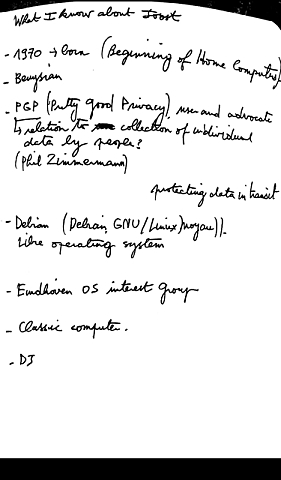 What I know about Joost
- 1970 → born (Beginning of Home Computers)
- Bayesian
- PGP (Pretty Good Privacy) use and advocate
↳ relation to collection of individual
data by people?
(Phil Zimmermann)
protecting data in transit
- Debian (Debian GNU/Linux/noyau)).
Libre operating system
- Eindhoven OS interest group
- Classic computer.
- DJ